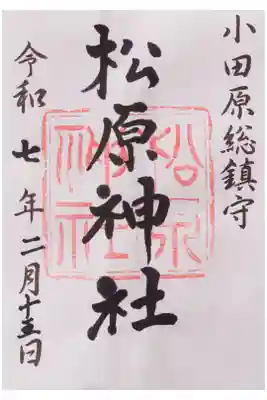 小田原総鎮守
松原神社
令和七年二月十三日